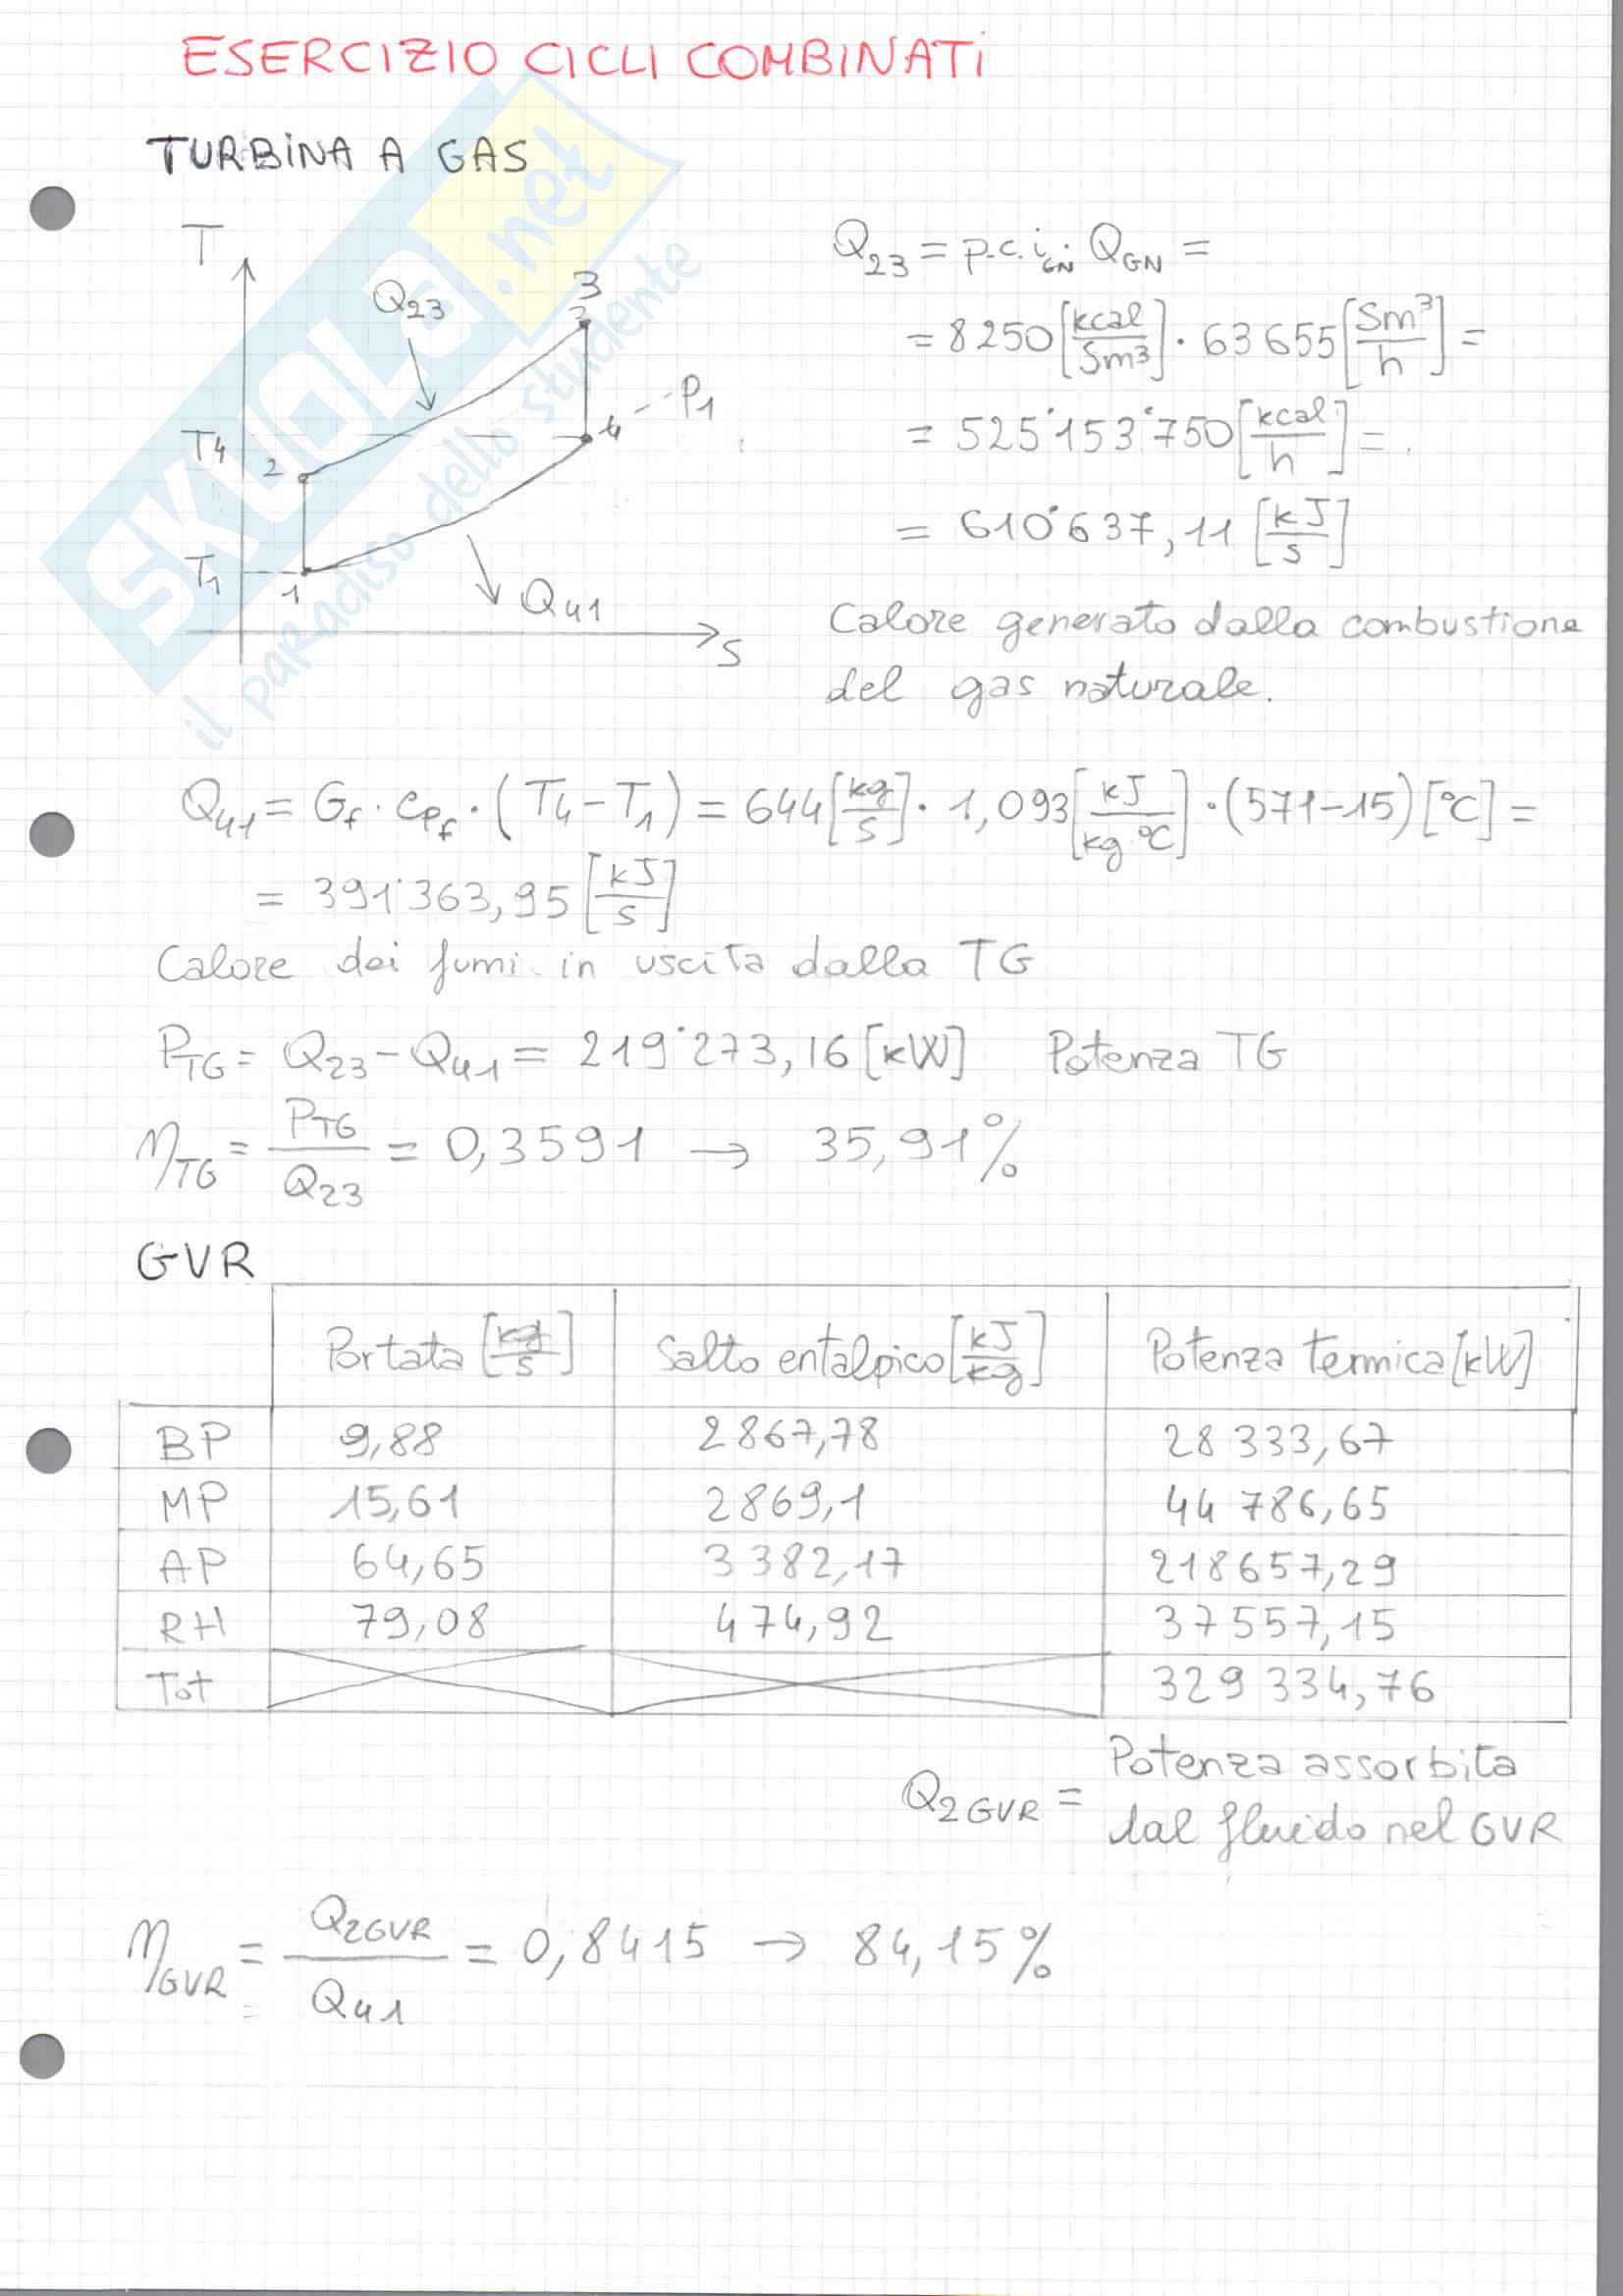 ESERCIZIO CICLI COMBINATI
TURBINA A GAS
T
Q23
3
P1
T4
2
4
T1
1
Q41
S
SKUOLA.net
il paradiso dello studente
Q23 = p.c.i.GN · QGN =
= 8250 [kcal/Sm³] · 63655 [Sm³/h] =
= 525˙153˙750 [kcal/h] =
= 610˙637,11 [kJ/s]
Calore generato dalla combustione
del gas naturale.
Q41 = Gf · cpf · (T4 - T1) = 644 [kg/s] · 1,093 [kJ/kg °C] · (571-15) [°C] =
= 391˙363,95 [kJ/s]
Calore dei fumi in uscita dalla TG
PTG = Q23 - Q41 = 219˙273,16 [kW] Potenza TG
ηTG = PTG/Q23 = 0,3591 → 35,91%
GVR
Portata [kg/s] Salto entalpico [kJ/kg] Potenza termica [kW]
BP 9,88 2867,78 28 333,67
MP 15,61 2869,1 44 786,65
AP 64,65 3382,17 218657,29
RH 79,08 474,92 37557,15
Tot 329 334,76
Q2GVR = Potenza assorbita
dal fluido nel GVR
ηGVR = Q2GVR/Q41 = 0,8415 → 84,15%